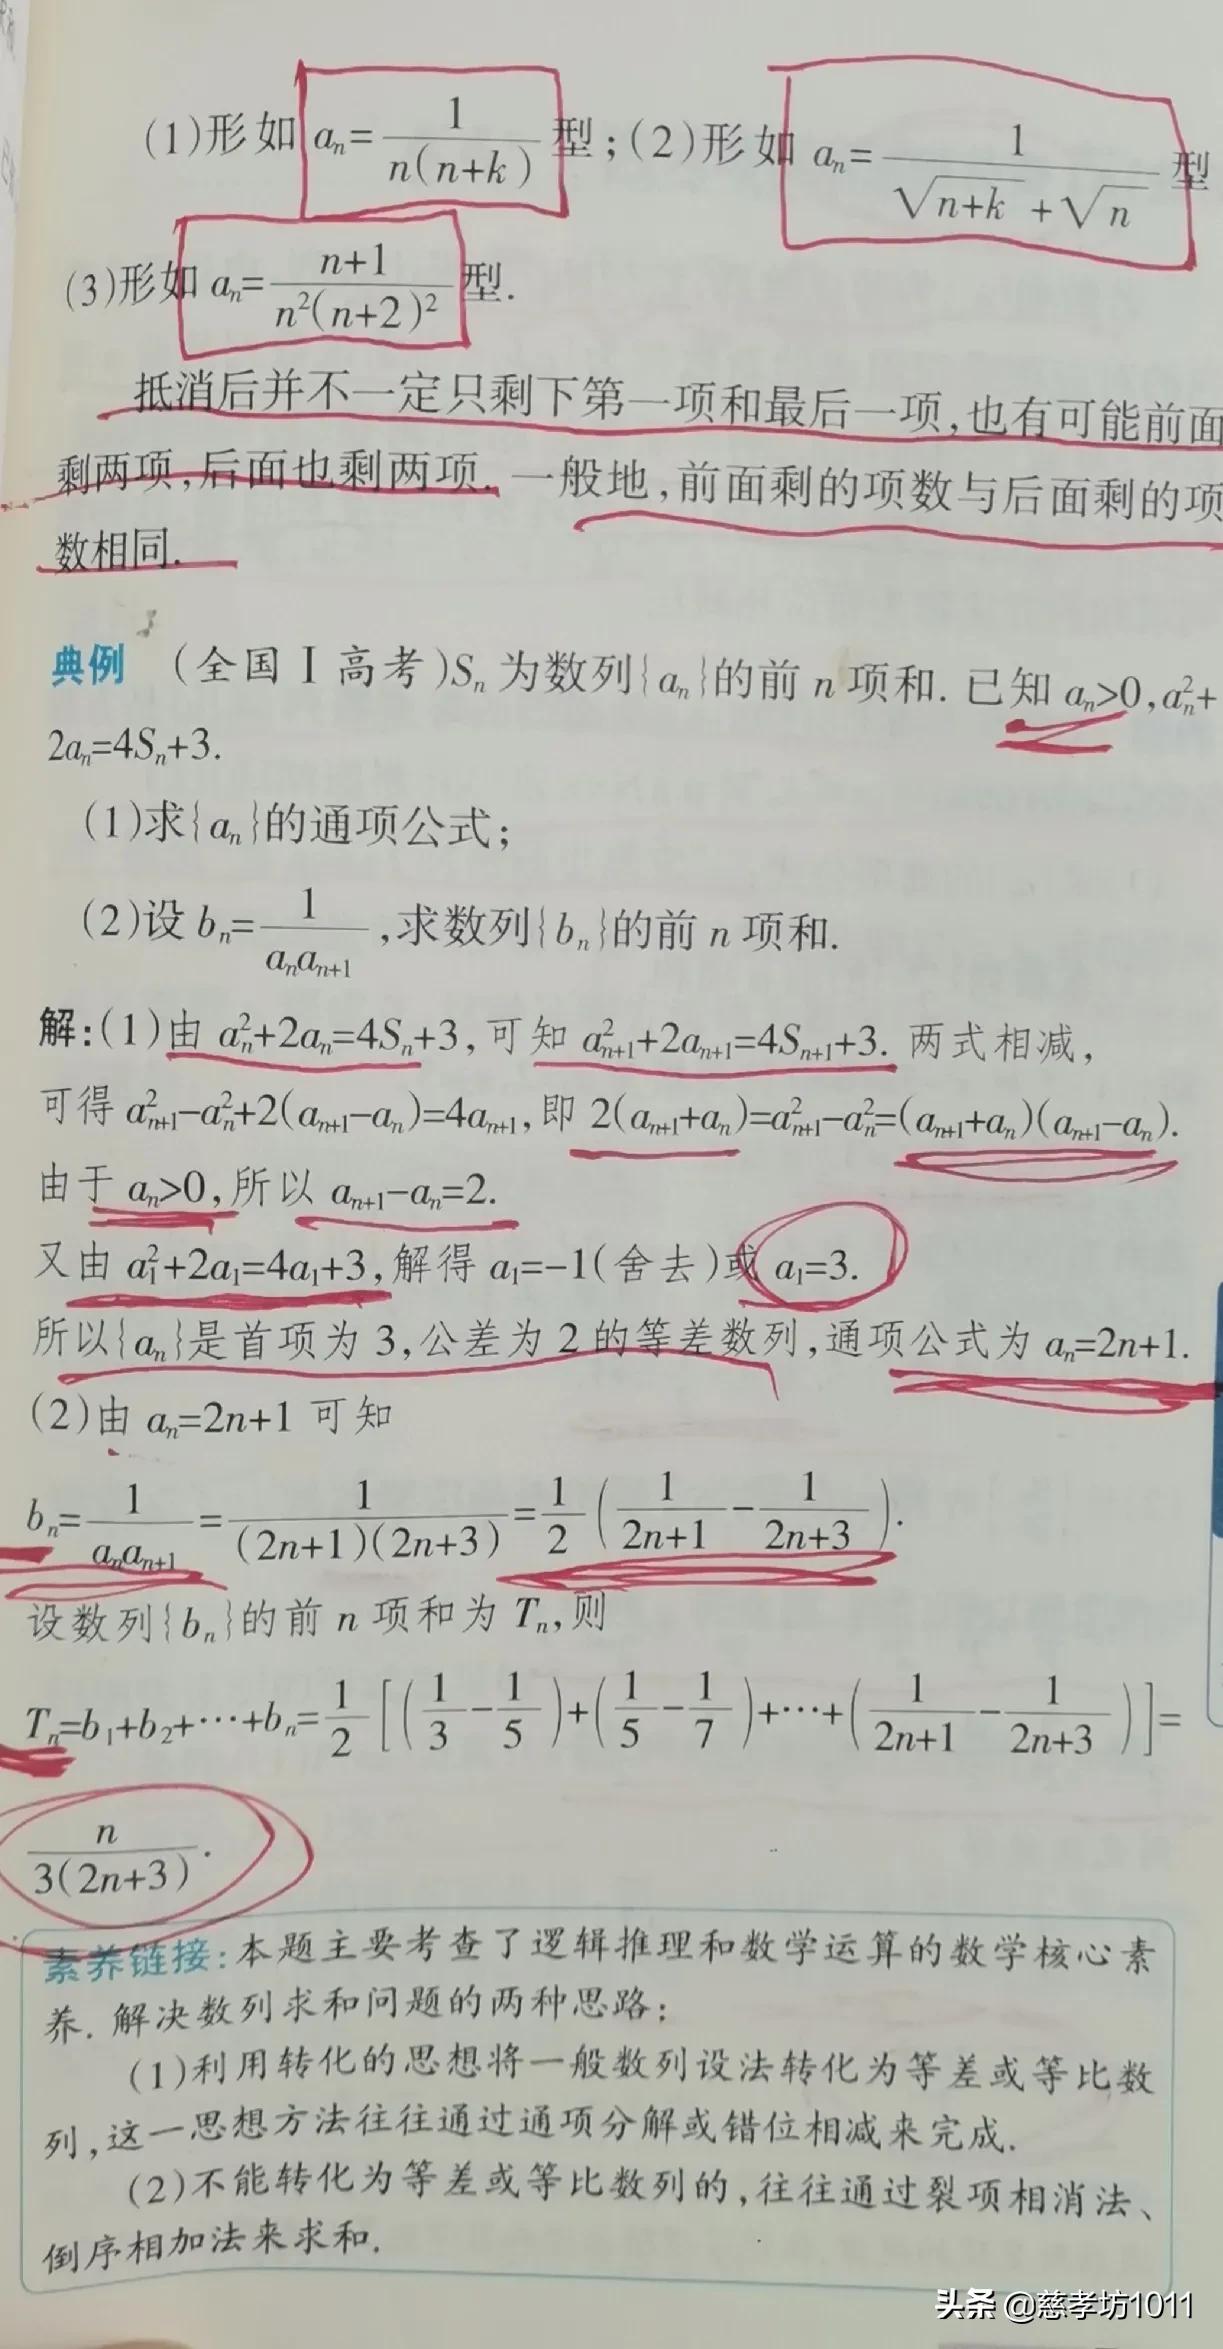 (1)形如 aₙ=1/(n(n+k)) 型;(2)形如 aₙ=1/(√(n+k)+√n) 型
(3)形如 aₙ=(n+1)/(n²(n+2)²) 型.
抵消后并不一定只剩下第一项和最后一项,也有可能前面
剩两项,后面也剩两项. 一般地,前面剩的项数与后面剩的项
数相同.
典例 (全国Ⅰ高考)Sₙ为数列{aₙ}的前 n 项和. 已知 aₙ>0,aₙ²+
2aₙ=4Sₙ+3.
(1)求{aₙ}的通项公式;
(2)设 bₙ=1/(aₙaₙ₊₁),求数列{bₙ}的前 n 项和.
解:(1)由 aₙ²+2aₙ=4Sₙ+3,可知 aₙ₊₁²+2aₙ₊₁=4Sₙ₊₁+3. 两式相减,
可得 aₙ₊₁²-aₙ²+2(aₙ₊₁-aₙ)=4aₙ₊₁,即 2(aₙ₊₁+aₙ)=aₙ₊₁²-aₙ²=(aₙ₊₁+aₙ)(aₙ₊₁-aₙ).
由于 aₙ>0,所以 aₙ₊₁-aₙ=2.
又由 a₁²+2a₁=4a₁+3,解得 a₁=-1(舍去)或 a₁=3.
所以{aₙ}是首项为 3,公差为 2 的等差数列,通项公式为 aₙ=2n+1.
(2)由 aₙ=2n+1 可知
bₙ=1/(aₙaₙ₊₁)=1/((2n+1)(2n+3))=1/2(1/(2n+1)-1/(2n+3)).
设数列{bₙ}的前 n 项和为 Tₙ,则
Tₙ=b₁+b₂+…+bₙ=1/2[(1/3-1/5)+(1/5-1/7)+…+(1/(2n+1)-1/(2n+3))]=
n/(3(2n+3)).
素养链接:本题主要考查了逻辑推理和数学运算的数学核心素
养. 解决数列求和问题的两种思路:
(1)利用转化的思想将一般数列设法转化为等差或等比数
列,这一思想方法往往通过通项分解或错位相减来完成.
(2)不能转化为等差或等比数列的,往往通过裂项相消法、
倒序相加法来求和.
头条 @慈孝坊1011